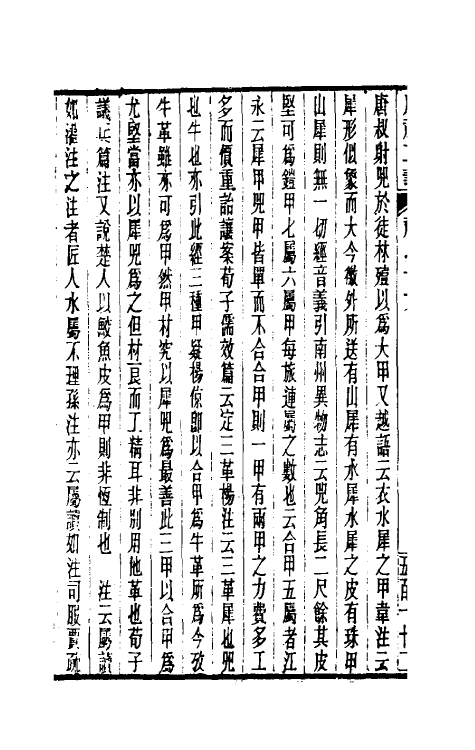 唐叔射兕於徒林殪以為大甲又越語云衣水犀之甲韋注云
犀形似象而大今徼外所送有山犀有水犀水犀之皮有珠甲
山犀則無一切經音義引南州異物志云兕角長二尺餘其皮
堅可為鎧甲七屬六屬甲每旅連屬之數也云合甲五屬者江
永云犀甲兕甲皆單而不合合甲則一甲有兩甲之力費多工
多而價重詒讓案荀子儒效篇云定三革楊注云三革犀也兕
也牛也亦引此經三種甲疑楊倞即以合甲為牛革所為今攷
牛革雖亦可為甲然甲材究以犀兕為最善此三甲以合甲為
尤堅當亦以犀兕為之但材良而工精耳非別用他革也荀子
議兵篇注又說楚人以鮫魚皮為甲則非恆制也 注云屬讀
如灌注之注者匠人水屬不理孫注亦云屬讀如注司服賈疏